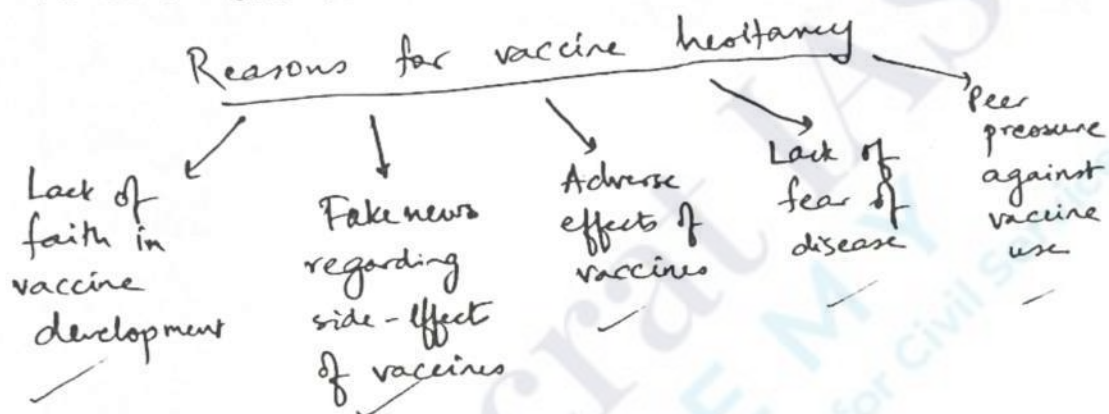 Reasons for vaccine hesitancy
Lack of
faith in
vaccine
development
Fake news
regarding
side-effects
of vaccines
Adverse
effects of
vaccines
Lack of
fear of
disease
Peer
pressure
against
vaccine
use
crat IAS
EMY
for Civil Service